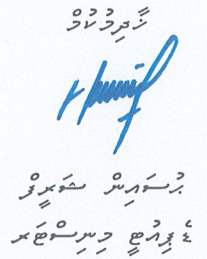 ޚާދިމުކުމް
ޙުސައިން ޝަރީފް
ޑެޕިއުޓީ މިނިސްޓަރ